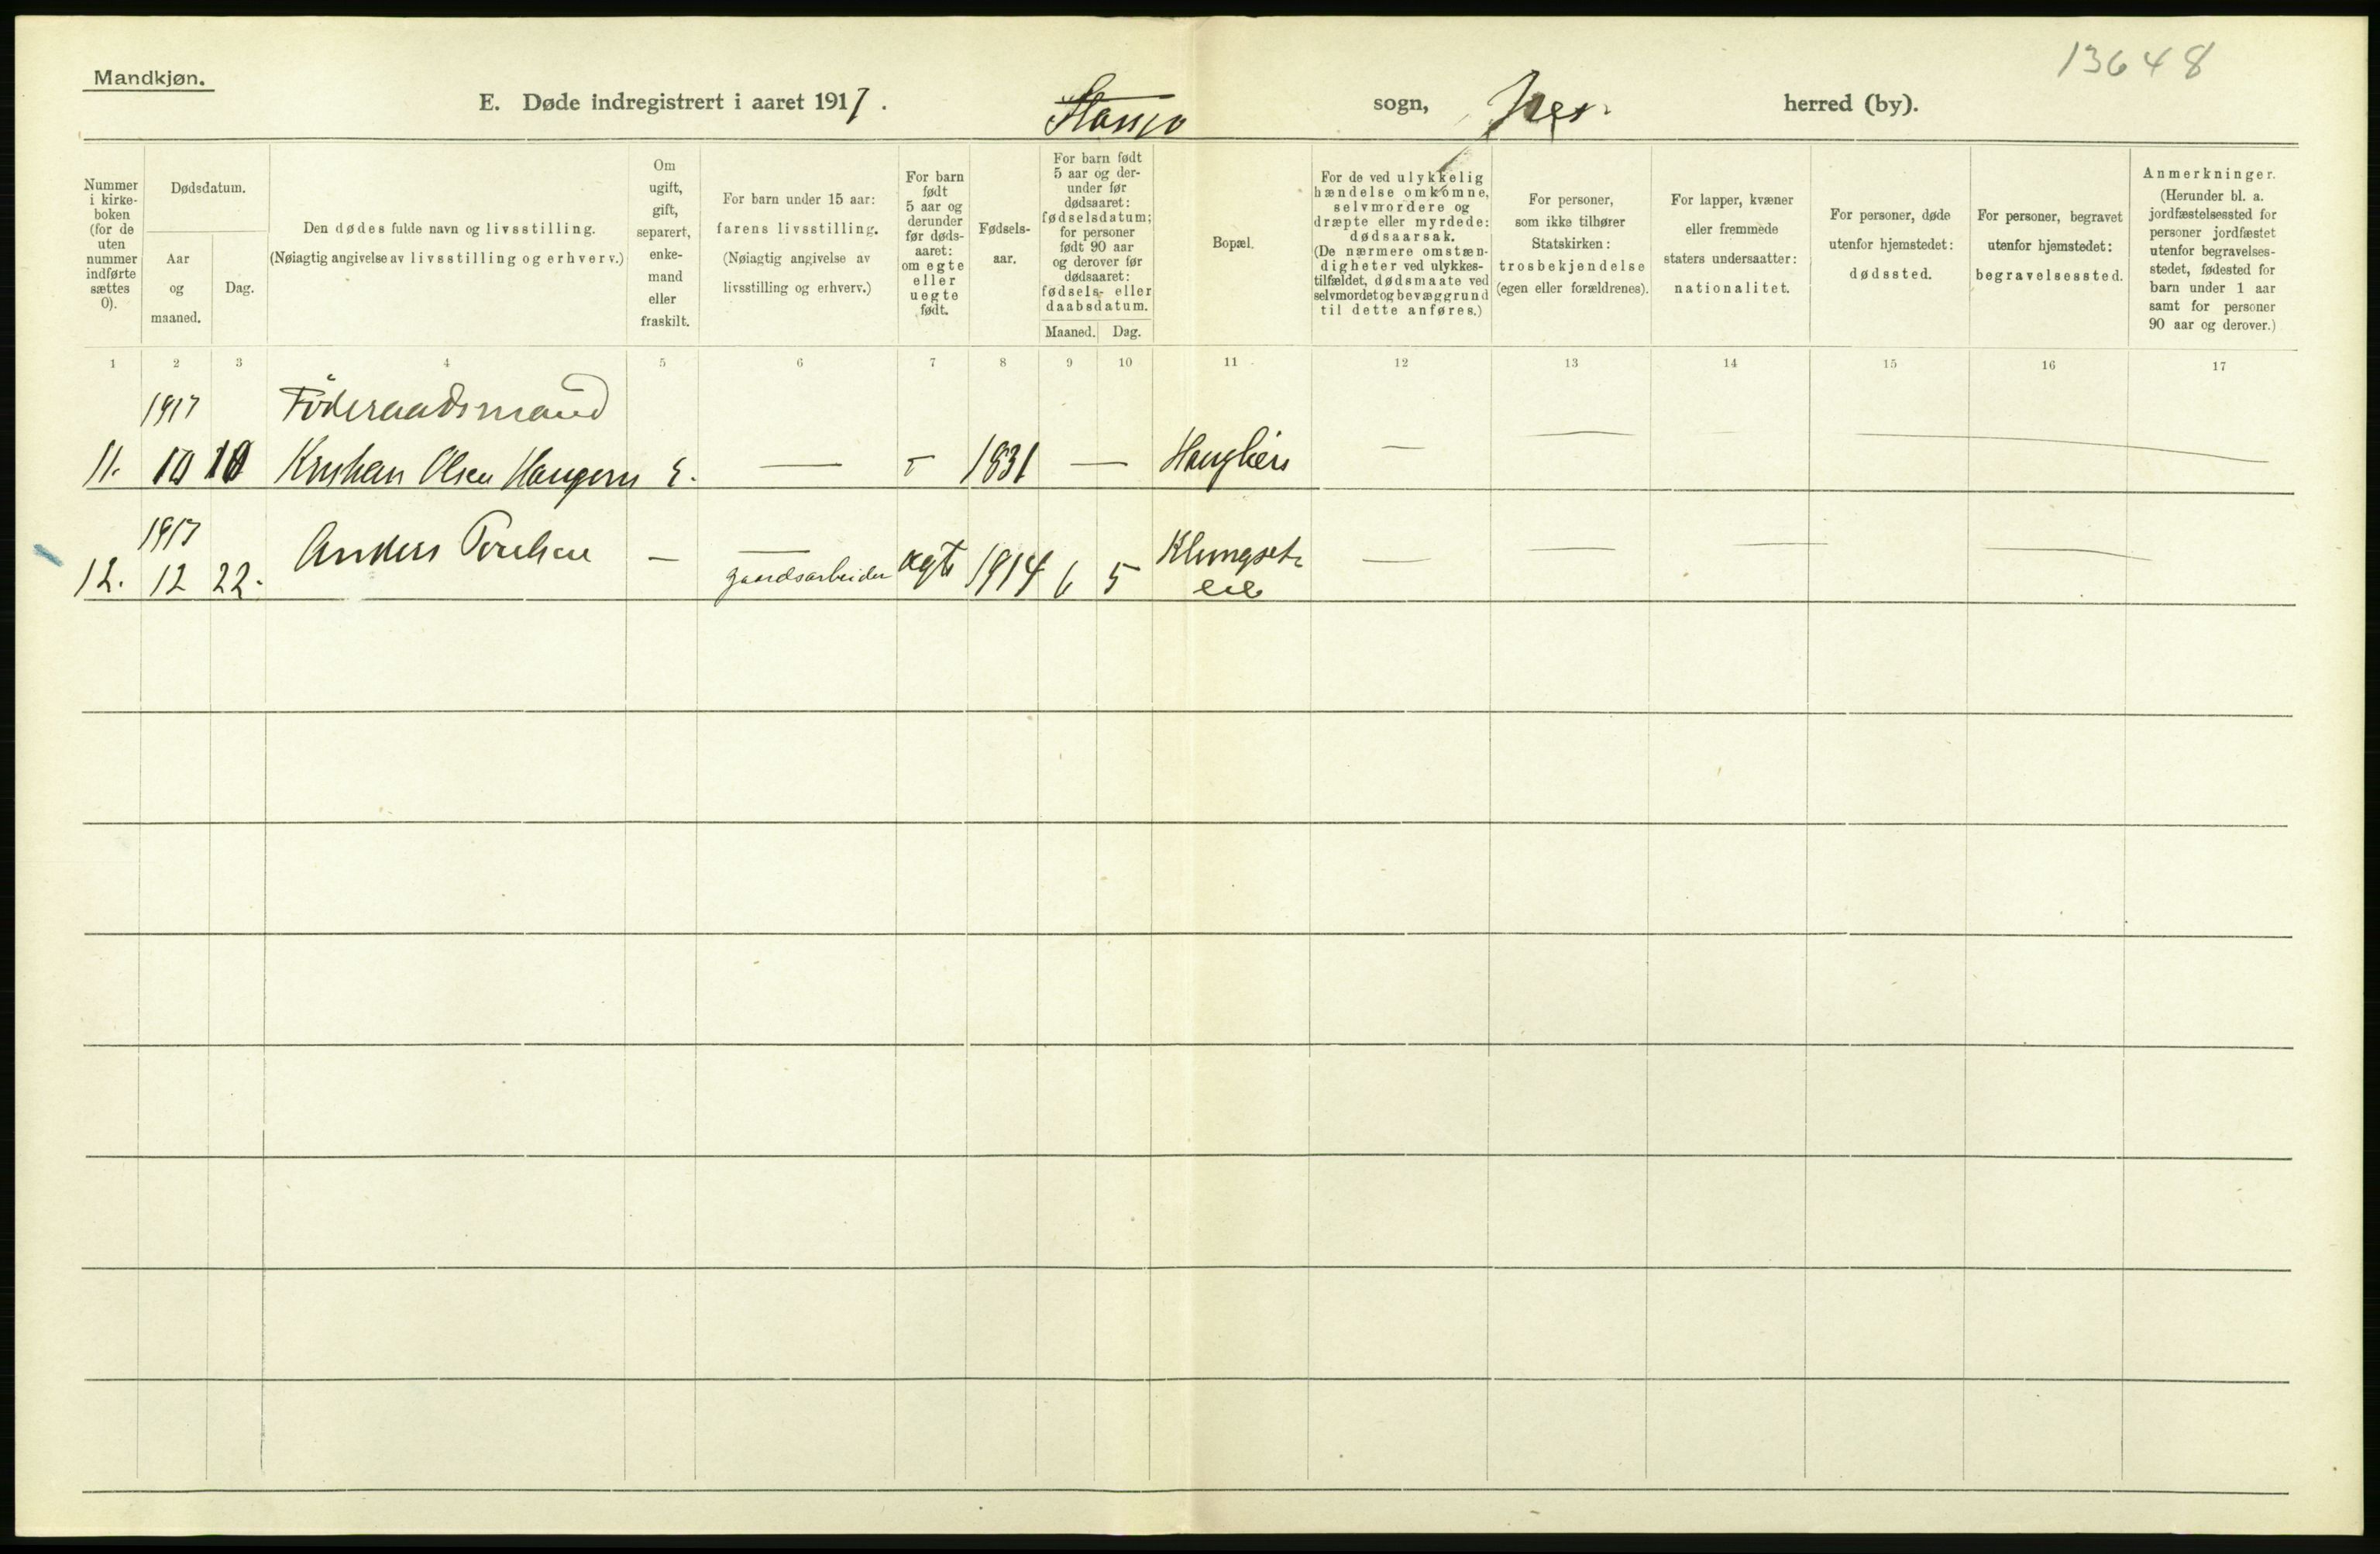 13648
Mandkjøn.
E. Døde indregistrert i aaret 1917.
sogn, Nes. herred (by).
Nummer i kirke-boken (for de uten nummer indførte sættes 0).
Dødsdatum.
Aar og maaned.
Dag.
Den dødes fulde navn og livsstilling.
(Nøiagtig angivelse av livsstilling og erhverv.)
Om ugift, gift, separert, enke-mand eller fraskilt.
For barn under 15 aar:
farens livsstilling.
(Nøiagtig angivelse av livsstilling og erhverv.)
For barn født 5 aar og derunder før døds-aaret: om egte eller uegte født.
Fødsels-aar.
For barn født 5 aar og der-under før dødsaaret: fødselsdatum; for personer født 90 aar og derover før dødsaaret: fødsels- eller daabsdatum.
Maaned. Dag.
Bopæl.
For de ved ulykkelig hændelse omkomne, selvmordere og dræpte eller myrdede: dødsaarsak.
(De nærmere omstæn-digheter ved ulykkes-tilfældet, dødsmaate ved selvmordet og bevæggrund til dette anføres.)
For personer, som ikke tilhører Statskirken: trosbekjendelse (egen eller forældrenes).
For lapper, kvæner eller fremmede staters undersaatter: nationalitet.
For personer, døde utenfor hjemstedet: dødssted.
For personer, begravet utenfor hjemstedet: begravelsessted.
Anmerkninger.
(Herunder bl. a. jordfæstelsessted for personer jordfæstet utenfor begravelses-stedet, fødested for barn under 1 aar samt for personer 90 aar og derover.)
1 2 3 4 5 6 7 8 9 10 11 12 13 14 15 16 17
1917 Føderaadsmand
11. 10 10 Kristian Olsen E. — - 1831 — — — — —
1917 Anders — — Klungset
12. 12 22. gaardsarbeider egte 1914 6 5 eie — — — —